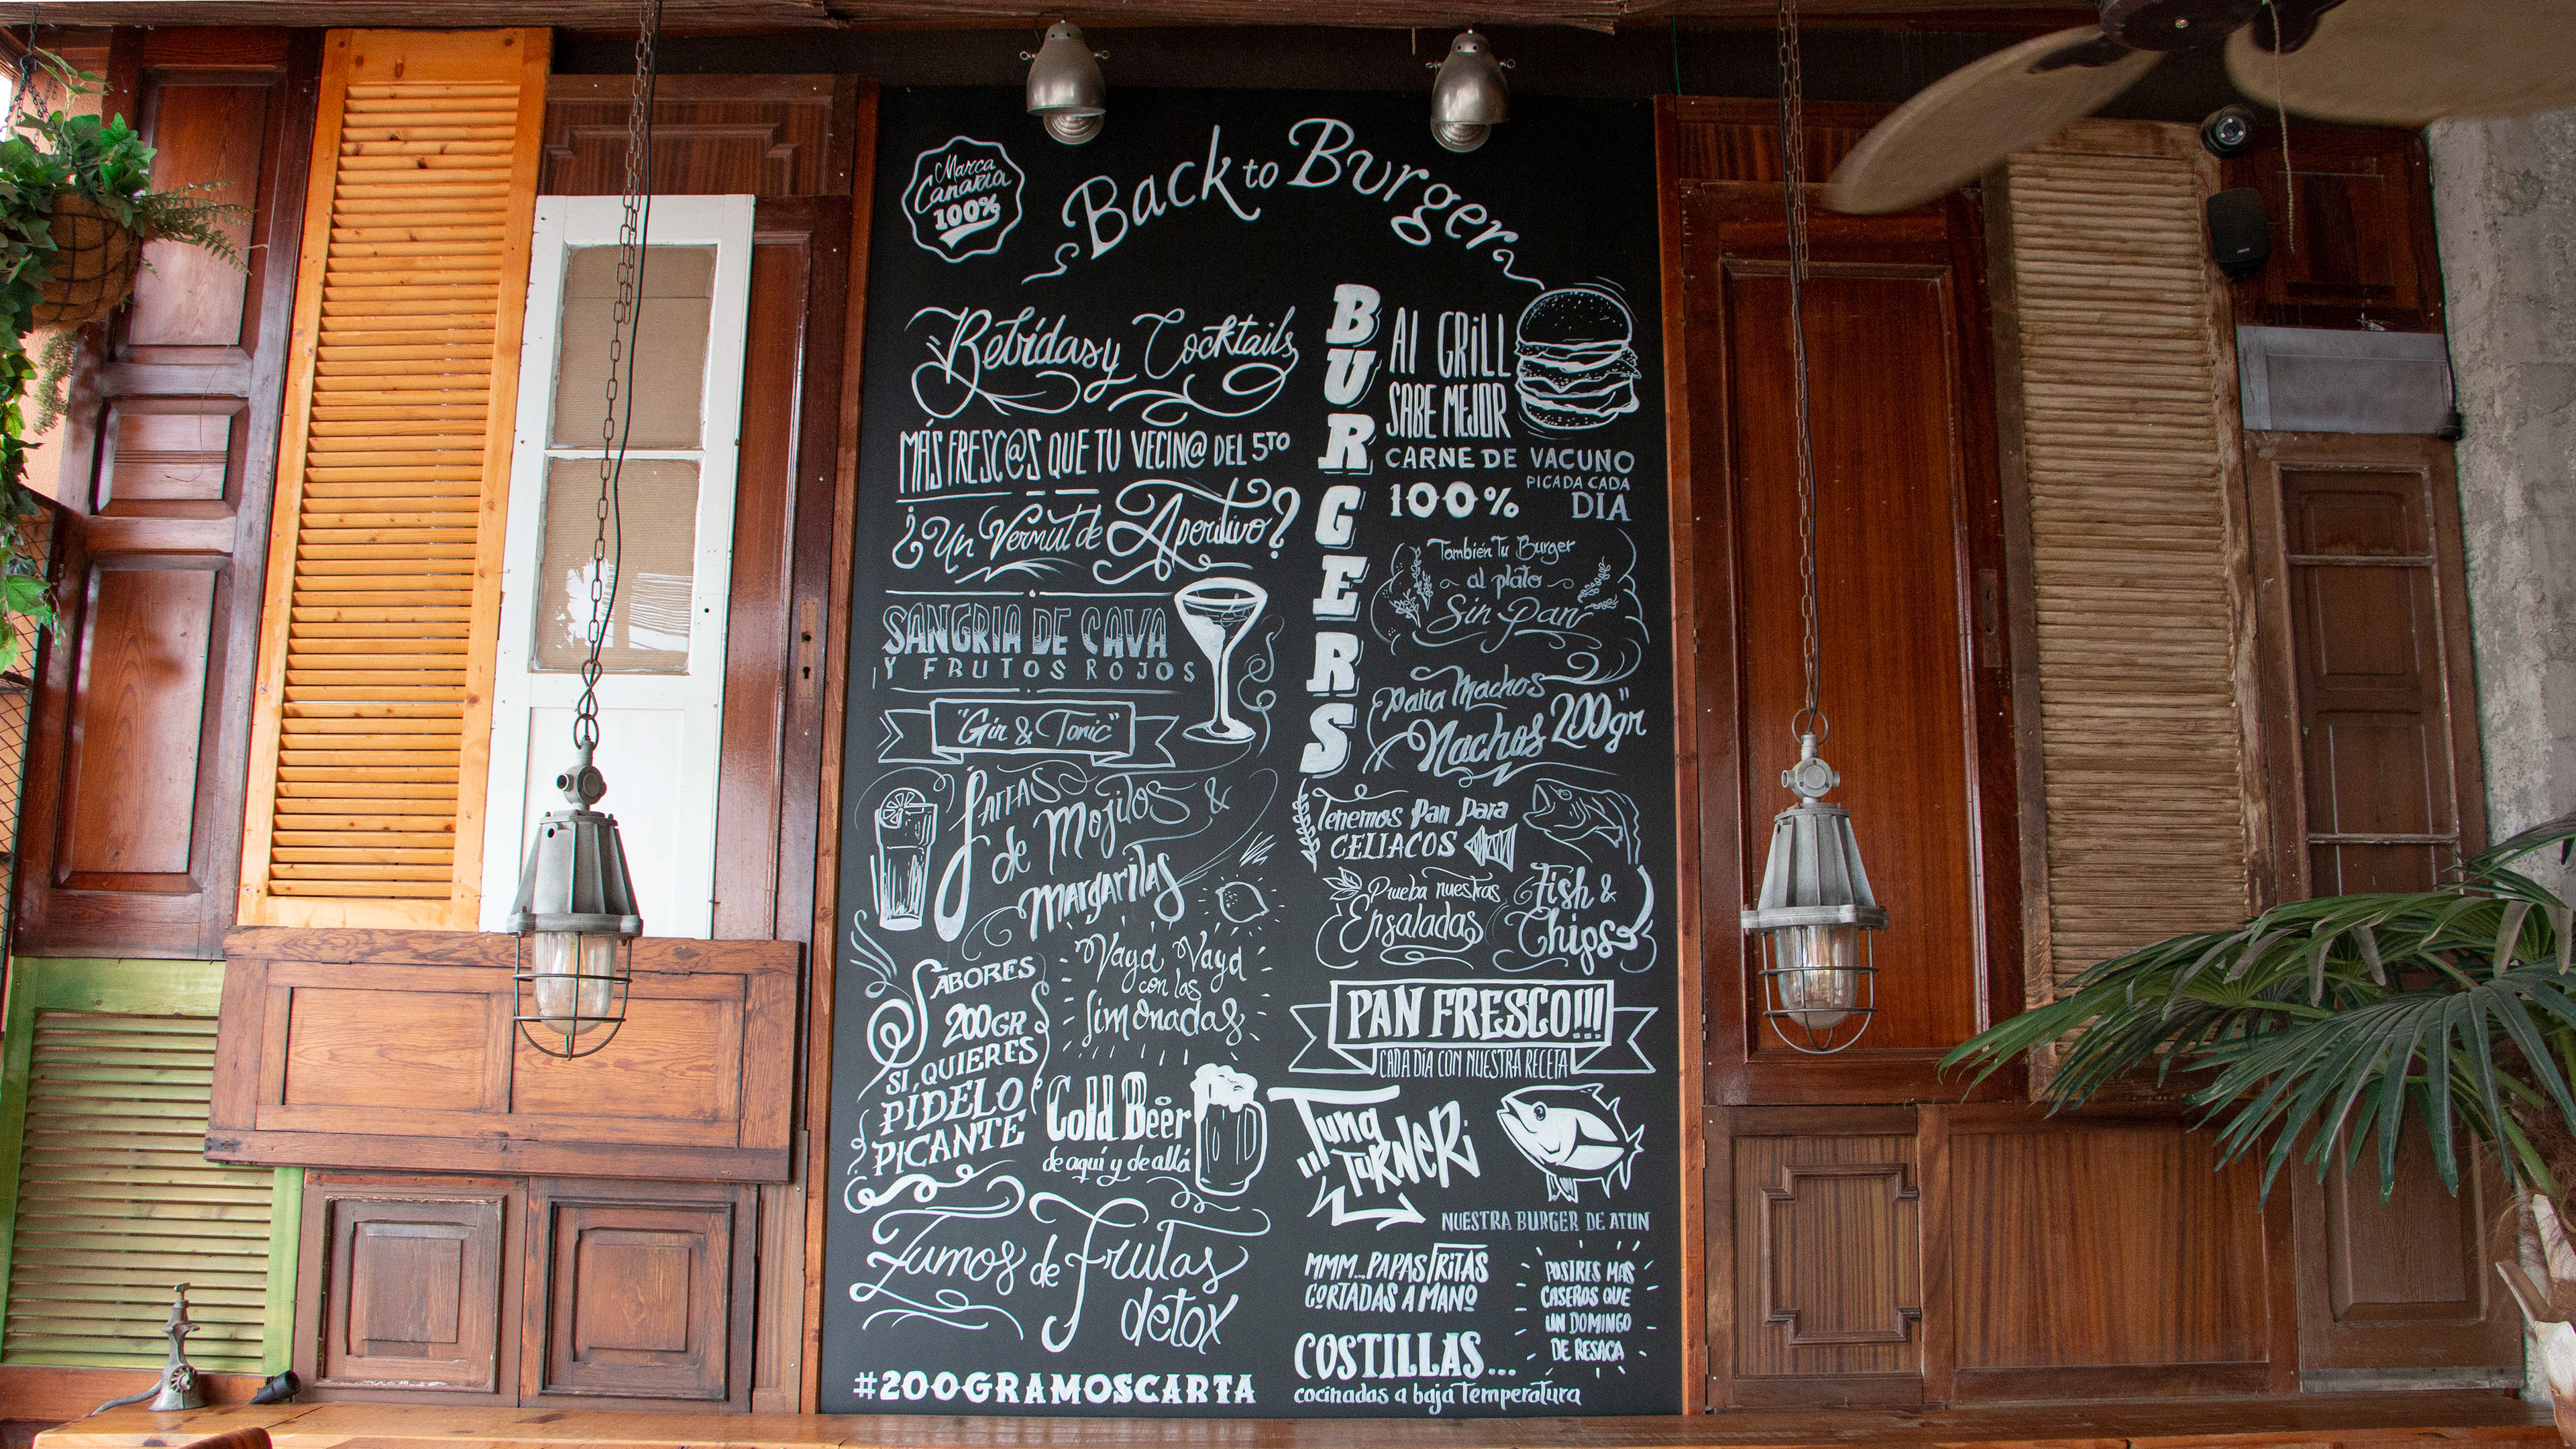 Marca
Canaria
100%
Back to Burger
Bebidas y Cocktails
MÁS FRESC@S QUE TU VECIN@ DEL 5TO
¿Un Vermut de Aperitivo?
SANGRIA DE CAVA
Y FRUTOS ROJOS
"Gin & Tonic"
Jarras
de Mojitos &
Margaritas
SABORES
200GR
SI QUIERES
PÍDELO
PICANTE
Vaya Vaya
con las
limonadas
Cold Beer
de aquí y de allá
Zumos de frutas
detox
#200GRAMOSCARTA
BURGERS
Al GRiLL
SABE MEJOR
CARNE DE VACUNO
PICADA CADA
100% DIA
También Tu Burger
al plato
Sin Pan
para Machos
Nachos 200gr"
Tenemos Pan Para
CELIACOS
Prueba nuestras
Ensaladas
Fish &
Chips
PAN FRESCO!!!
CADA DÍA CON NUESTRA RECETA
Tuna
TURNERi
NUESTRA BURGER DE ATUN
MMM...PAPAS FRITAS
CORTADAS A MANO
POSTRES MAS
CASEROS QUE
UN DOMINGO
DE RESACA
COSTILLAS...
cocinadas a baja Temperatura